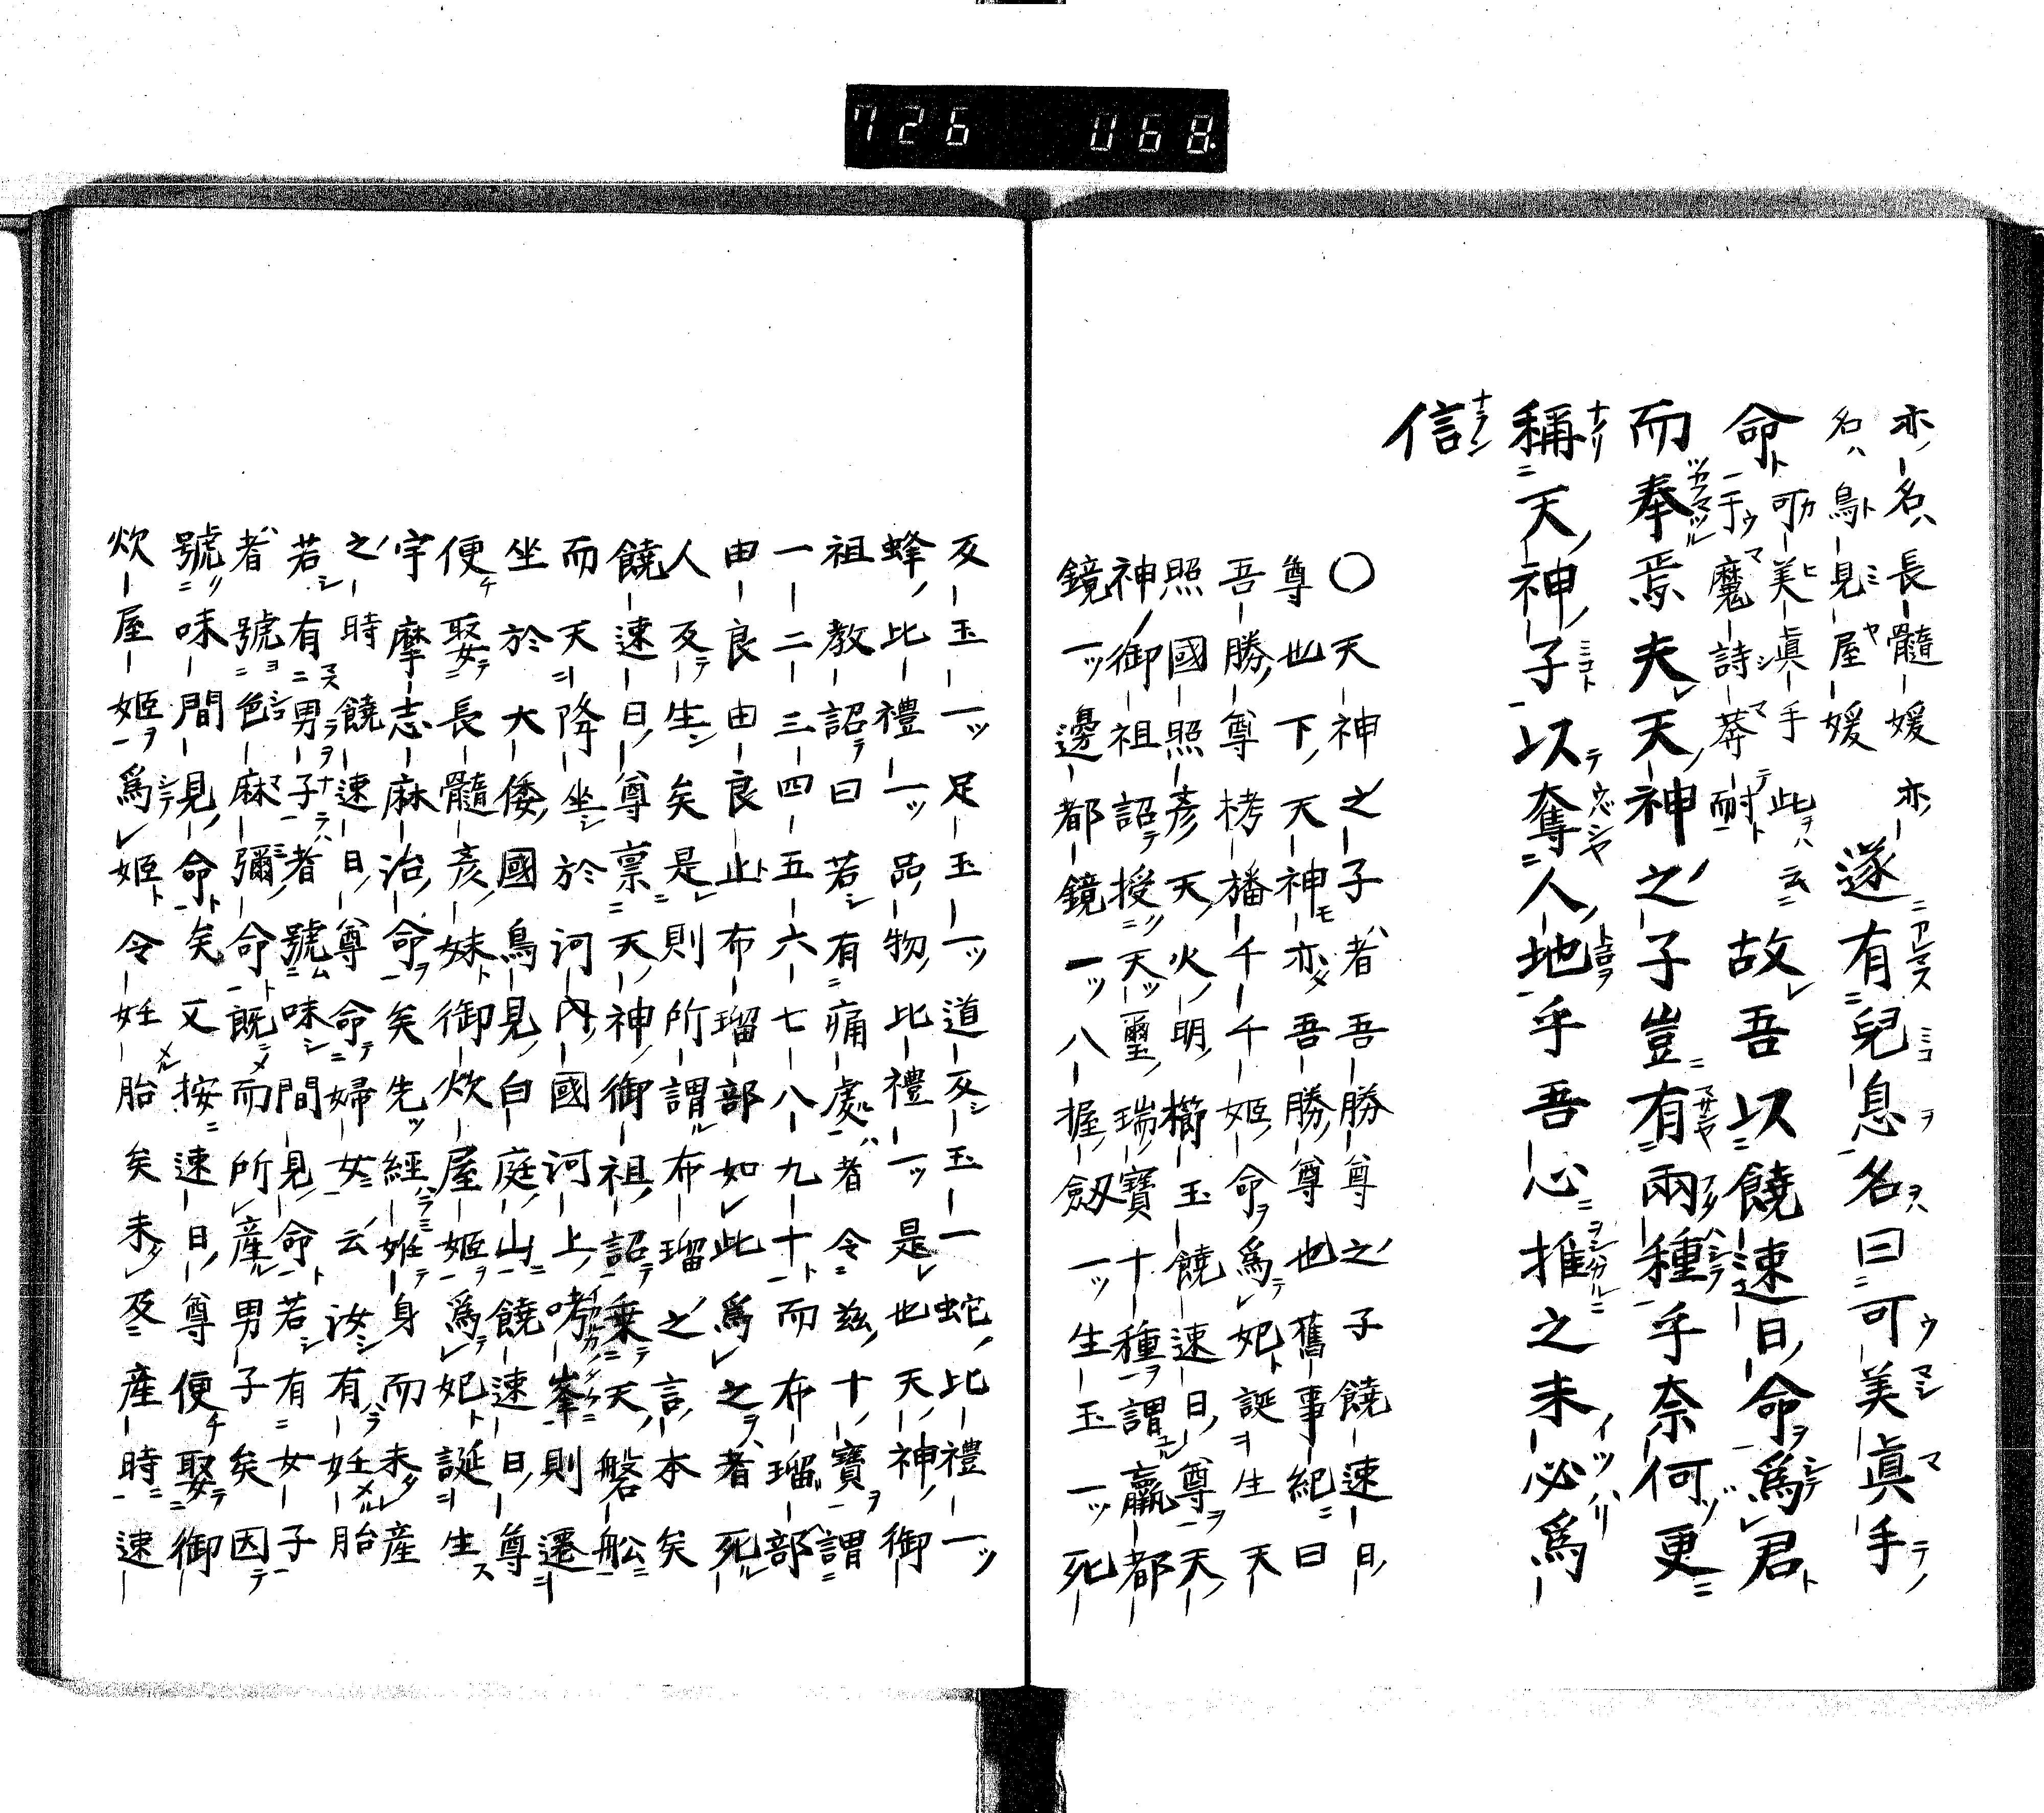 726 068.
亦名長髓媛亦
名鳥見屋媛遂有兒息名曰可美眞手
命可美眞手此云
于魔詩莽耐故吾以饒速日命爲君
而奉焉夫天神之子豈有兩種乎奈何更
稱天神子以奪人地乎吾心推之未必爲
信
〇天神之子者吾勝尊之子饒速日
尊也下天神亦吾勝尊也舊事紀曰
吾勝尊栲幡千千姫命爲妃誕生天
照國照彦天火明櫛玉饒速日尊天
神御祖詔授天璽瑞寶十種謂瀛都
鏡一ッ邊都鏡一ッ八握劔一ッ生玉一ッ死
反玉一ッ足玉一ッ道反玉一蛇比禮一ッ
蜂比禮一ッ品物比禮一ッ是也天神御
祖教詔曰若有痛處者令玆十寶謂
一二三四五六七八九十而布瑠部
由良由良止布瑠部如此爲之者死
人反生矣是則所謂布瑠之言本矣
饒速日尊禀天神御祖詔乗天磐舩
而天降坐於河內國河上哮峯則遷
坐於大倭國鳥見白庭山饒速日尊
便娶長髓彦妹御炊屋姫爲妃誕生
宇摩志麻治命矣先經姙身而未產
之時饒速日尊命婦女云汝有妊胎
若有男子者號味間見命若有女子
者號色麻彌命既而所產男子矣因
號味間見命矣又按速日尊便娶御
炊屋姫爲姫令妊胎矣未及產時速